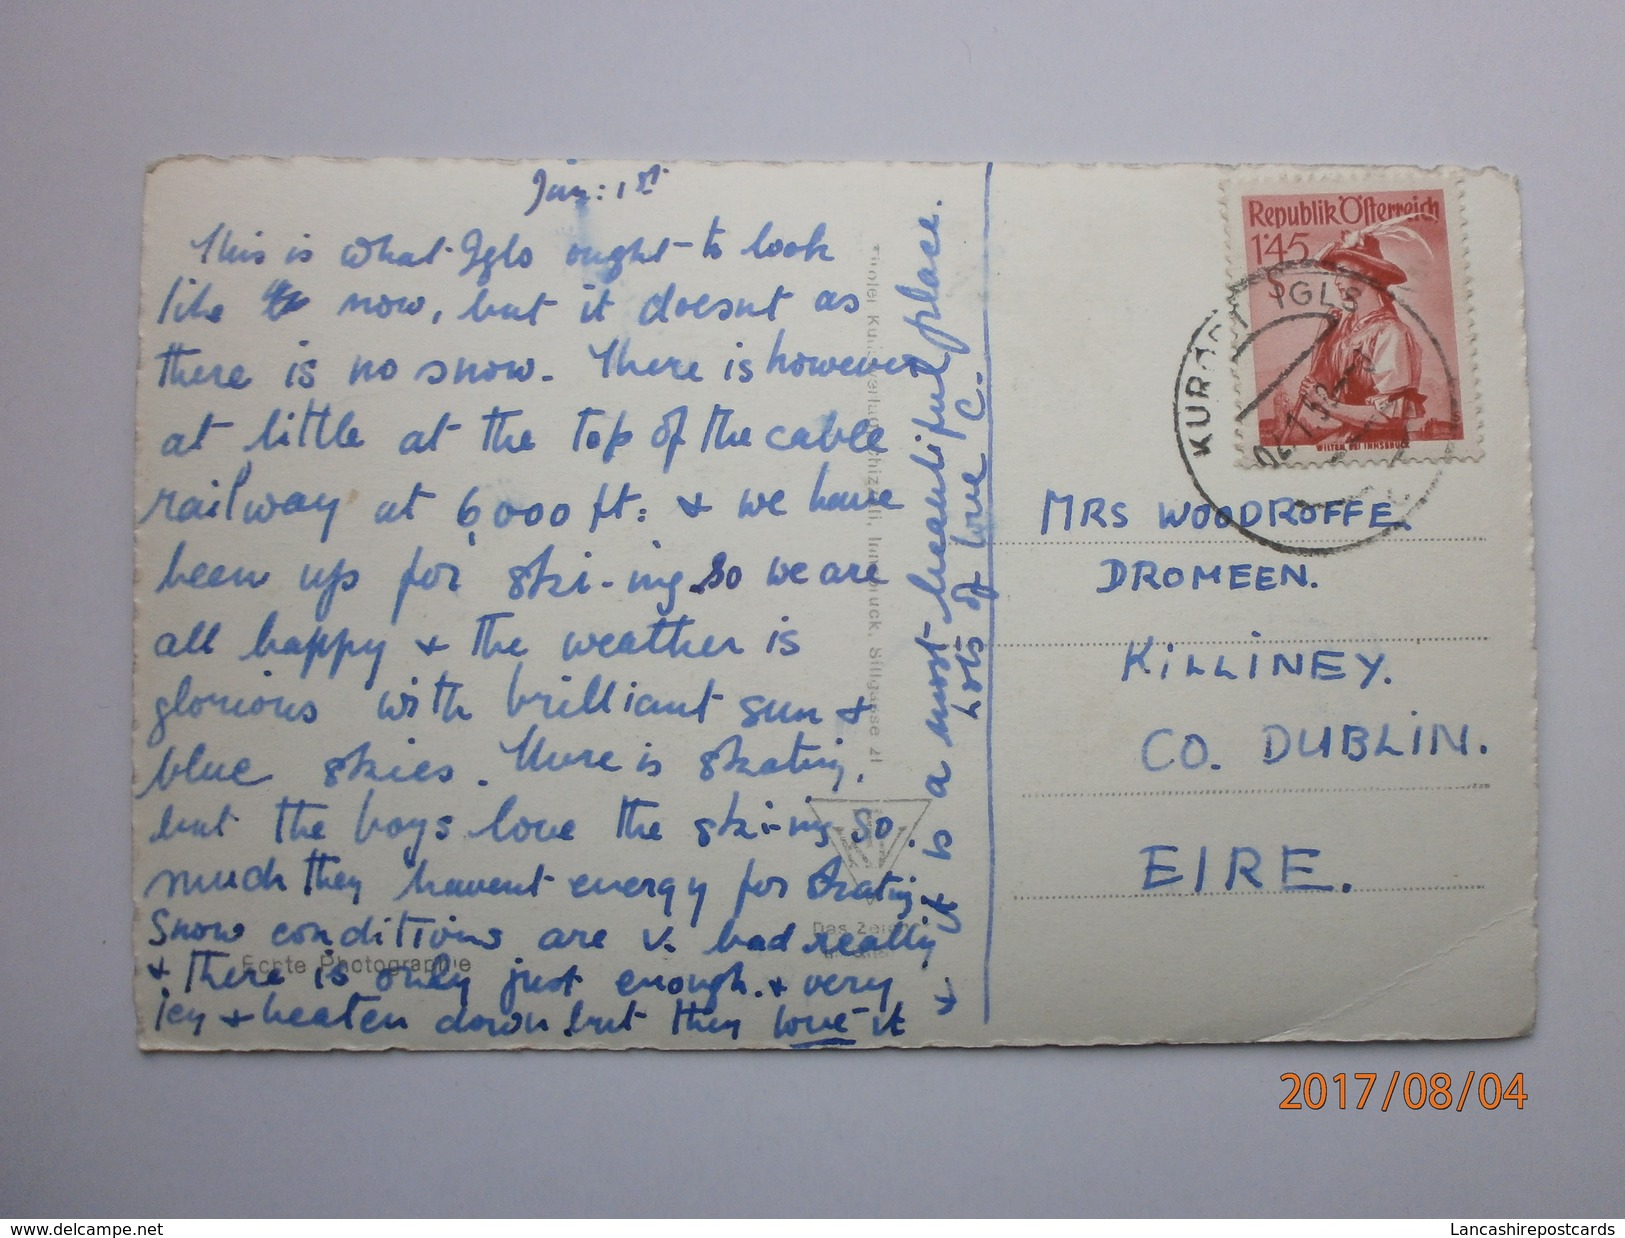 Jan: 1st
This is what Igls ought to look
like now, but it doesnt as
there is no snow. There is however
at little at the top of the cable
railway at 6,000 ft: & we have
been up for ski-ing so we are
all happy & the weather is
glorious with brilliant sun &
blue skies. There is skating,
but the boys love the ski-ing so
much they havent energy for skating.
Snow conditions are v. bad really
& there is only just enough & very
icy & beaten down but they love it
& it is a most beautiful place.
Lots of love C.
Tiroler Kunstverlag Chizzali, Innsbruck, Sillgasse 21
Echte Photographie
Das Zeichen
Republik Österreich
1'45
S
WILTEN BEI INNSBRUCK
KURORT IGLS
02.1.52
MRS WOODROFFE.
DROMEEN.
KILLINEY.
CO. DUBLIN.
EIRE.
2017/08/04
www.delcampe.net
Lancashirepostcards